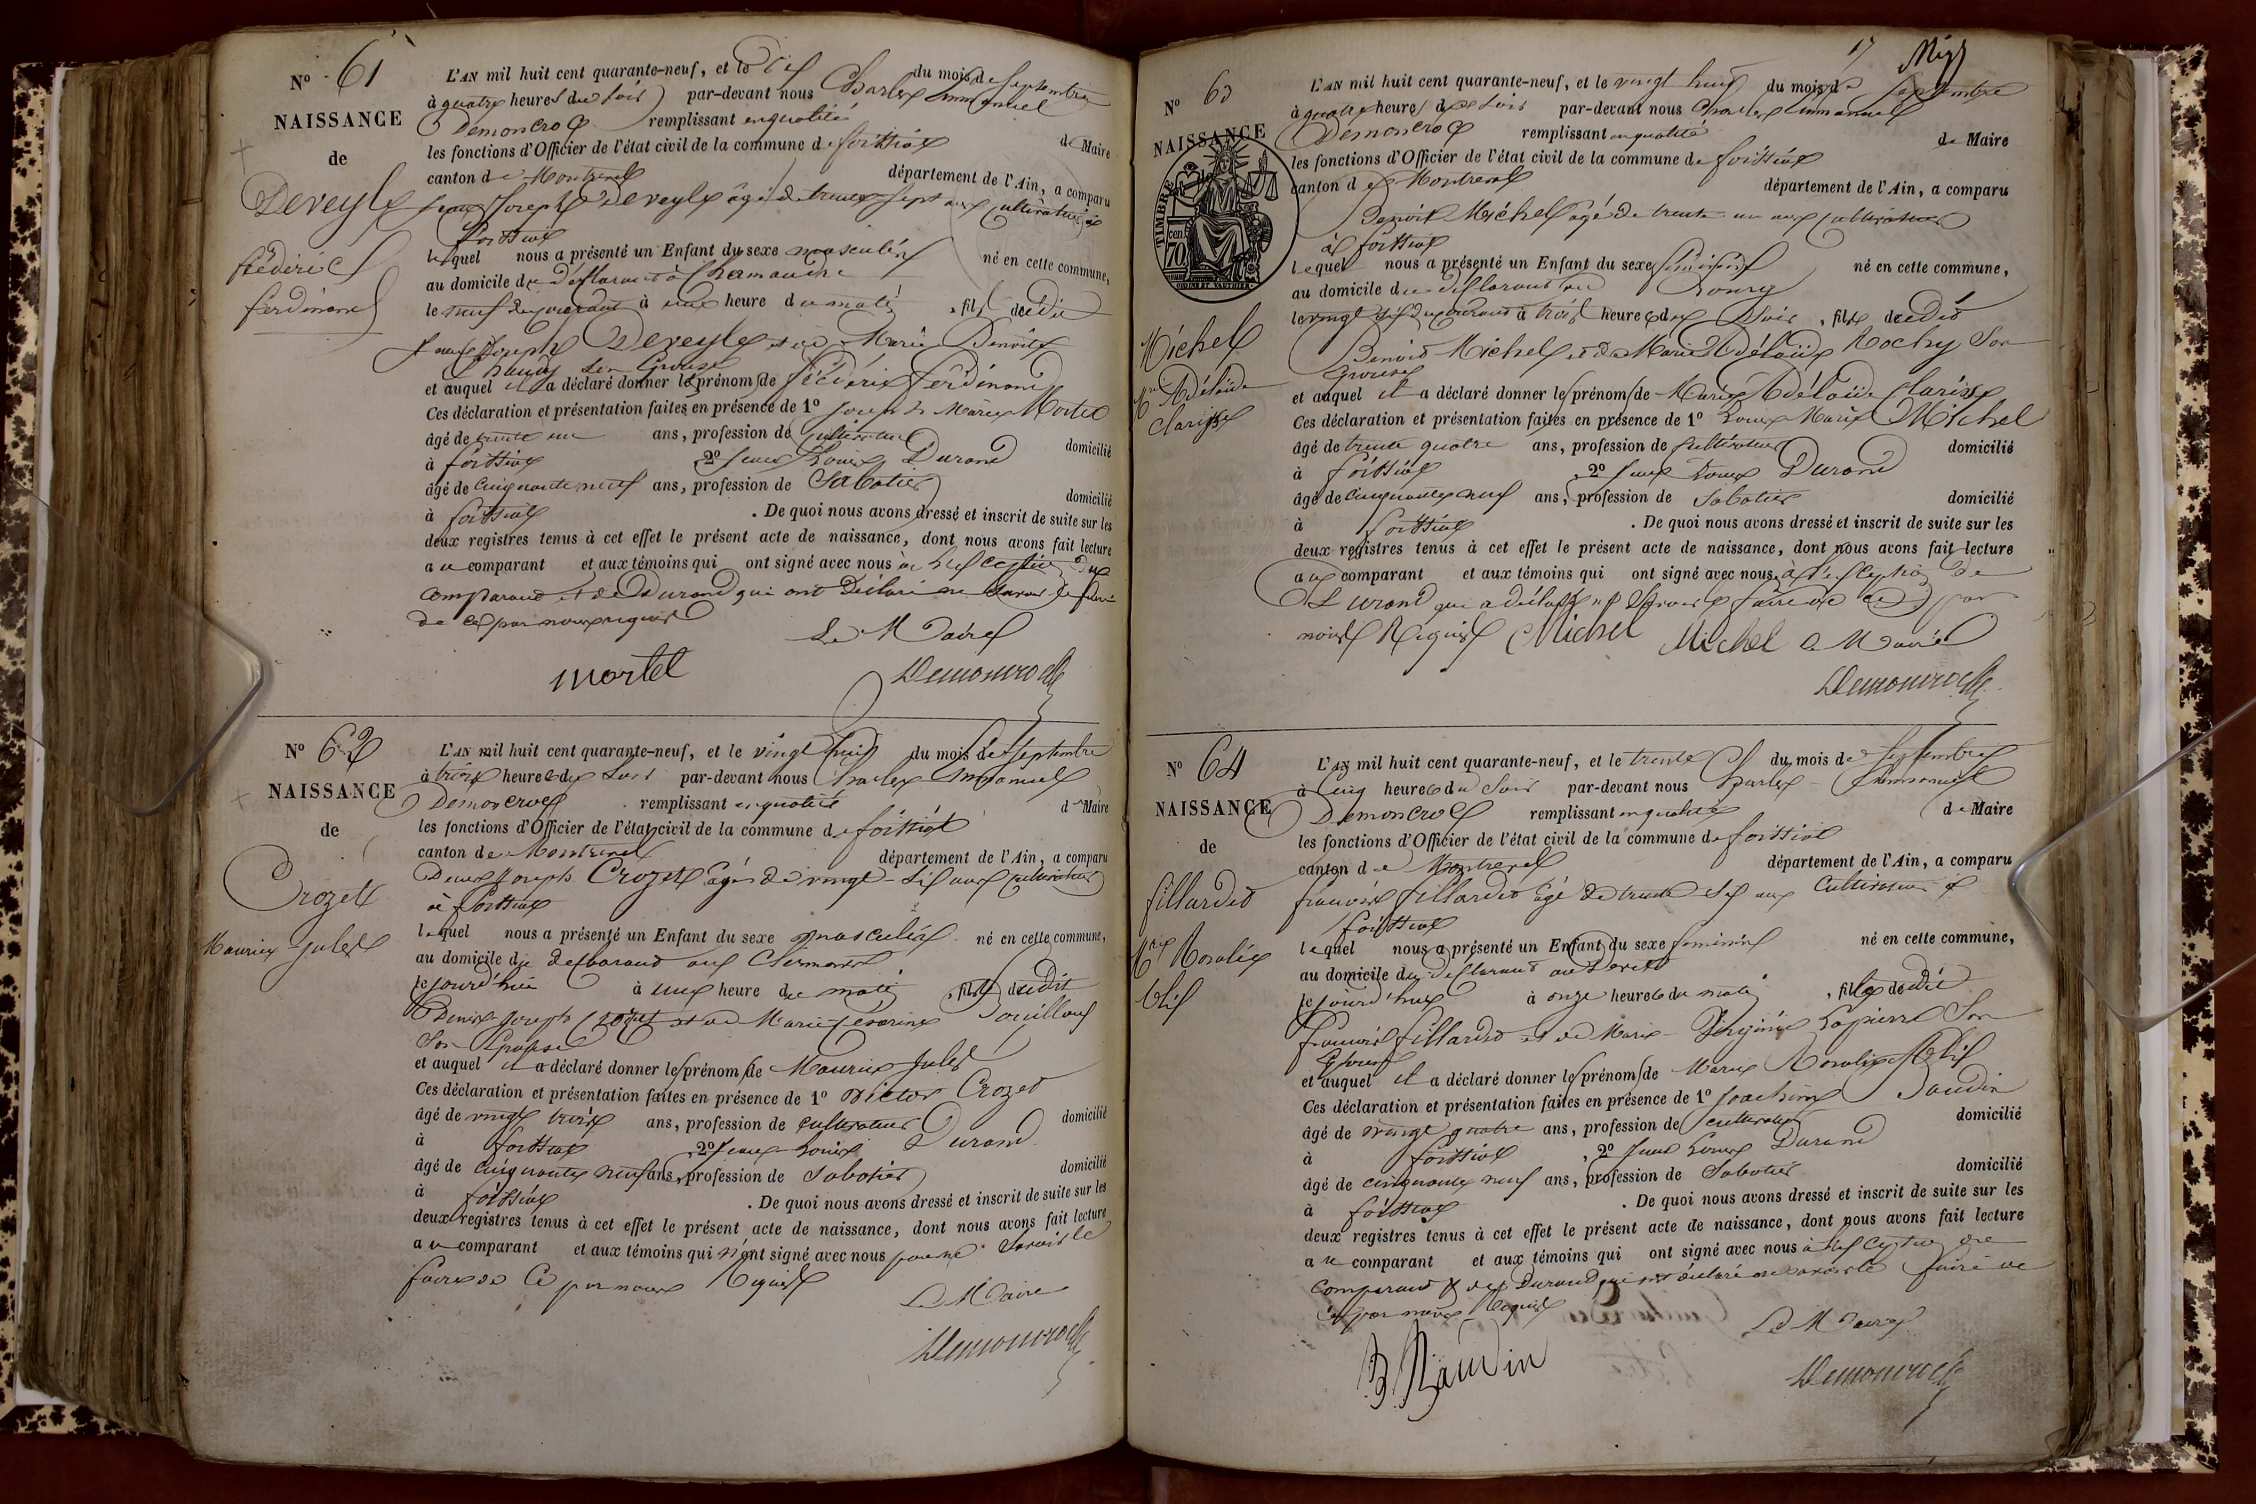 N° 61
NAISSANCE
de
Deveyle
frédéric
ferdinand
L'AN mil huit cent quarante-neuf, et le dix du mois de Septembre
à quatre heures du soir par-devant nous Charles Emmanuel
Demoncroc remplissant en qualité
les fonctions d'Officier de l'état civil de la commune de foissiat de Maire
canton de Montrevel département de l'Ain, a comparu
Jean Joseph Deveyle âgé de trente sept ans cultivateur à
foissiat
lequel nous a présenté un Enfant du sexe masculin né en cette commune,
au domicile du déclarant à
le neuf du courant à une heure du matin, fils dudit
Jean Joseph Deveyle et de Marie Benoite
son Epouse
et auquel il a déclaré donner les prénoms de frédéric ferdinand
Ces déclaration et présentation faites en présence de 1° Joseph Marie Mortel
âgé de trente un ans, profession de cultivateur domicilié
à foissiat 2° Jean Louis Durand
âgé de cinquante neuf ans, profession de Sabotier domicilié
à foissiat. De quoi nous avons dressé et inscrit de suite sur les
deux registres tenus à cet effet le présent acte de naissance, dont nous avons fait lecture
au comparant et aux témoins qui ont signé avec nous à l'exception du
comparant et de Durand qui ont déclaré ne savoir le faire
de ce par nous requis
Le Maire
Mortel
N° 62
NAISSANCE
de
Crozet
Maurice Jules
L'AN mil huit cent quarante-neuf, et le vingt huit du mois de Septembre
à trois heures du soir par-devant nous Charles Emmanuel
remplissant en qualité de Maire
les fonctions d'Officier de l'état civil de la commune de foissiat
canton de Montrevel département de l'Ain, a comparu
Denis Joseph Crozet âgé de vingt-six ans cultivateur
à foissiat
lequel nous a présenté un Enfant du sexe masculin né en cette commune,
au domicile du déclarant
le jourd'hui à une heure du matin, fils dudit
Denis Joseph Crozet et de Marie Séverine
son Epouse
et auquel il a déclaré donner les prénoms de Maurice Jules
Ces déclaration et présentation faites en présence de 1° Victor Crozet
âgé de vingt trois ans, profession de cultivateur domicilié
à foissiat, 2° Jean Louis Durand
âgé de cinquante neuf ans, profession de Sabotier domicilié
à foissiat. De quoi nous avons dressé et inscrit de suite sur les
deux registres tenus à cet effet le présent acte de naissance, dont nous avons fait lecture
au comparant et aux témoins qui n'ont signé avec nous pour ne savoir le
faire de ce par nous requis
Le Maire
17
N° 63
NAISSANCE
TIMBRE
70 cen.
Michel
Mie Adélaïde
Clarisse
L'AN mil huit cent quarante-neuf, et le vingt huit du mois de Septembre
à quatre heures du soir par-devant nous Charles Emmanuel
Demoncroc remplissant en qualité de Maire
les fonctions d'Officier de l'état civil de la commune de foissiat
canton de Montrevel département de l'Ain, a comparu
Benoit Michel âgé de trente un ans cultivateur
à foissiat
lequel nous a présenté un Enfant du sexe féminin né en cette commune,
au domicile du déclarant
le vingt six du courant à trois heures du soir, fille dudit
Benoit Michel et de Marie Adélaïde Rochy Son
Epouse
et auquel il a déclaré donner les prénoms de Marie Adélaïde Clarisse
Ces déclaration et présentation faites en présence de 1° Louis Marie Michel
âgé de trente quatre ans, profession de cultivateur domicilié
à foissiat, 2° Jean Louis Durand
âgé de cinquante neuf ans, profession de Sabotier domicilié
à foissiat. De quoi nous avons dressé et inscrit de suite sur les
deux registres tenus à cet effet le présent acte de naissance, dont nous avons fait lecture
au comparant et aux témoins qui ont signé avec nous à l'exception de
Durand qui a déclaré ne savoir faire de ce par
nous Requis Michel Michel Le Maire
N° 64
NAISSANCE
de
fillardet
Mie Rosalie
L'AN mil huit cent quarante-neuf, et le trente du mois de Septembre
à cinq heures du soir par-devant nous Charles Emmanuel
remplissant en qualité de Maire
les fonctions d'Officier de l'état civil de la commune de foissiat
canton de Montrevel département de l'Ain, a comparu
françois fillardet âgé de trente six ans cultivateur à
foissiat
lequel nous a présenté un Enfant du sexe féminin né en cette commune,
au domicile du déclarant
le jourd'hui à onze heures du matin, fille dudit
françois fillardet et de Marie Virginie Lapierre Son
Epouse
et auquel il a déclaré donner les prénoms de Marie Rosalie
Ces déclaration et présentation faites en présence de 1° Joachim
âgé de vingt quatre ans, profession de cultivateur domicilié
à foissiat, 2° Jean Louis Durand
âgé de cinquante neuf ans, profession de Sabotier domicilié
à foissiat. De quoi nous avons dressé et inscrit de suite sur les
deux registres tenus à cet effet le présent acte de naissance, dont nous avons fait lecture
au comparant et aux témoins qui ont signé avec nous à l'exception du
comparant et de Durand qui ont déclaré ne savoir le faire de
ce par nous Requis
Le Maire